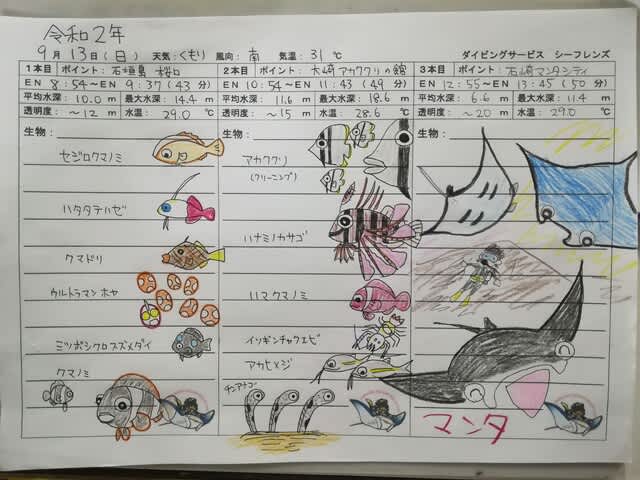 令和2年
9月13日(日) 天気:くもり 風向:南 気温:31℃ ダイビングサービス シーフレンズ
1本目 ポイント:石垣島 桜口
EN 8:54〜EN 9:37(43分)
平均水深:10.0m 最大水深:14.4m
透明度:〜12m 水温:29.0℃
生物:
セジロクマノミ
ハタタテハゼ
クマドリ
ウルトラマンホヤ
ミツボシクロスズメダイ
クマノミ
2本目 ポイント:大崎アカククリの館
EN 10:54〜EN 11:43(49分)
平均水深:11.6m 最大水深:18.6m
透明度:〜15m 水温:28.6℃
生物:
アカククリ
(クリーニング)
ハナミノカサゴ
ハマクマノミ
イソギンチャクエビ
アカヒメジ
チンアナゴ
3本目 ポイント:石崎マンタシティ
EN 12:55〜EN 13:45(50分)
平均水深:6.6m 最大水深:11.4m
透明度:〜20m 水温:29.0℃
生物:
マンタ